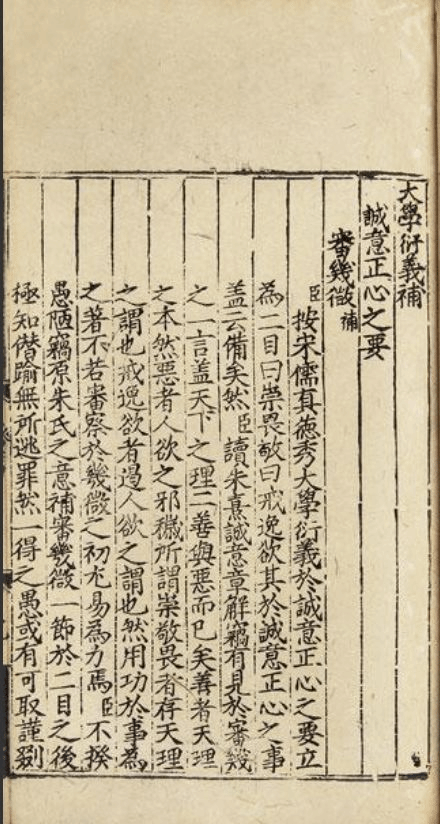 大學衍義補
誠意正心之要
審幾微補
臣按宋儒真德秀大學衍義於誠意正心之要立
為二目曰崇畏敬曰戒逸欲其於誠意正心之事
盖云備矣然臣讀朱熹誠意章解竊有見於審幾
之一言盖天下之理二善與惡而已矣善者天理
之本然惡者人欲之邪穢所謂崇敬畏者存天理
之謂也戒逸欲者遏人欲之謂也然用功於事為
之著不若審察於幾微之初尤易為力焉臣不揆
愚陋竊原朱氏之意補審幾微一節於二目之後
極知僣踰無所逃罪然一得之愚或有可取謹剟